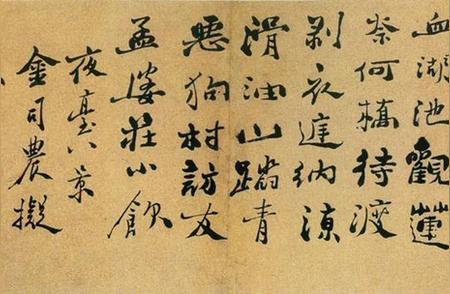 血湖池觀蓮
柰何橋待渡
剥衣㕔納涼
滑油山蹋青
惡狗村訪友
孟婆莊小飲
夜臺八景
金司農擬